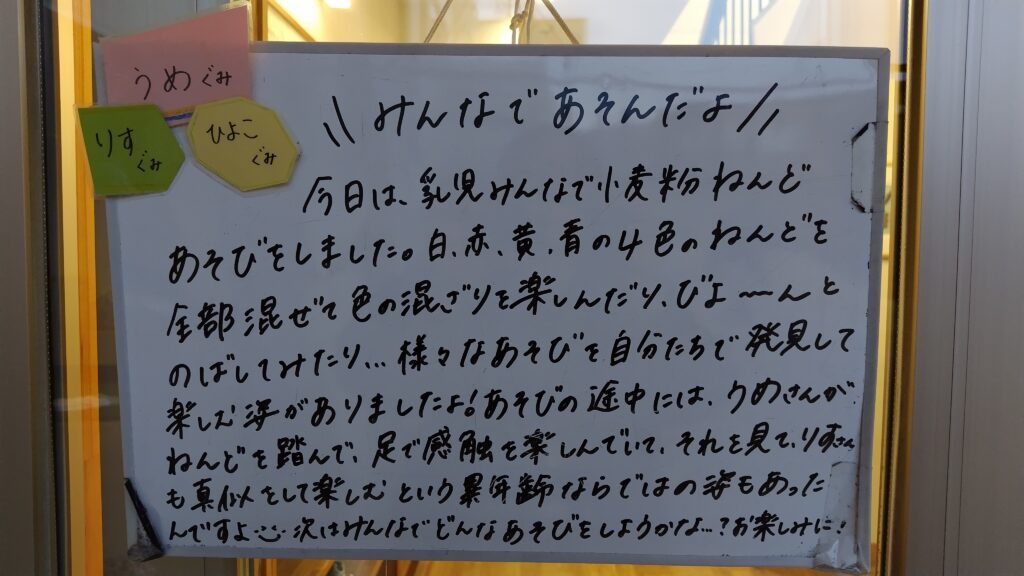 うめぐみ
りすぐみ
ひよこぐみ
\\ みんなで あそんだよ //
今日は、乳児みんなで小麦粉ねんど
あそびをしました。白、赤、黄、青の4色のねんどを
全部混ぜて色の混ざりを楽しんだり、びよ〜〜んと
のばしてみたり...様々なあそびを自分たちで発見して
楽しむ姿がありましたよ!あそびの途中には、うめさんが、
ねんどを踏んで、足で感触を楽しんでいて、それを見て、りすさん
も真似をして楽しむという異年齢ならではの姿もあった
んですよ 次はみんなでどんなあそびをしようかな...?お楽しみに!